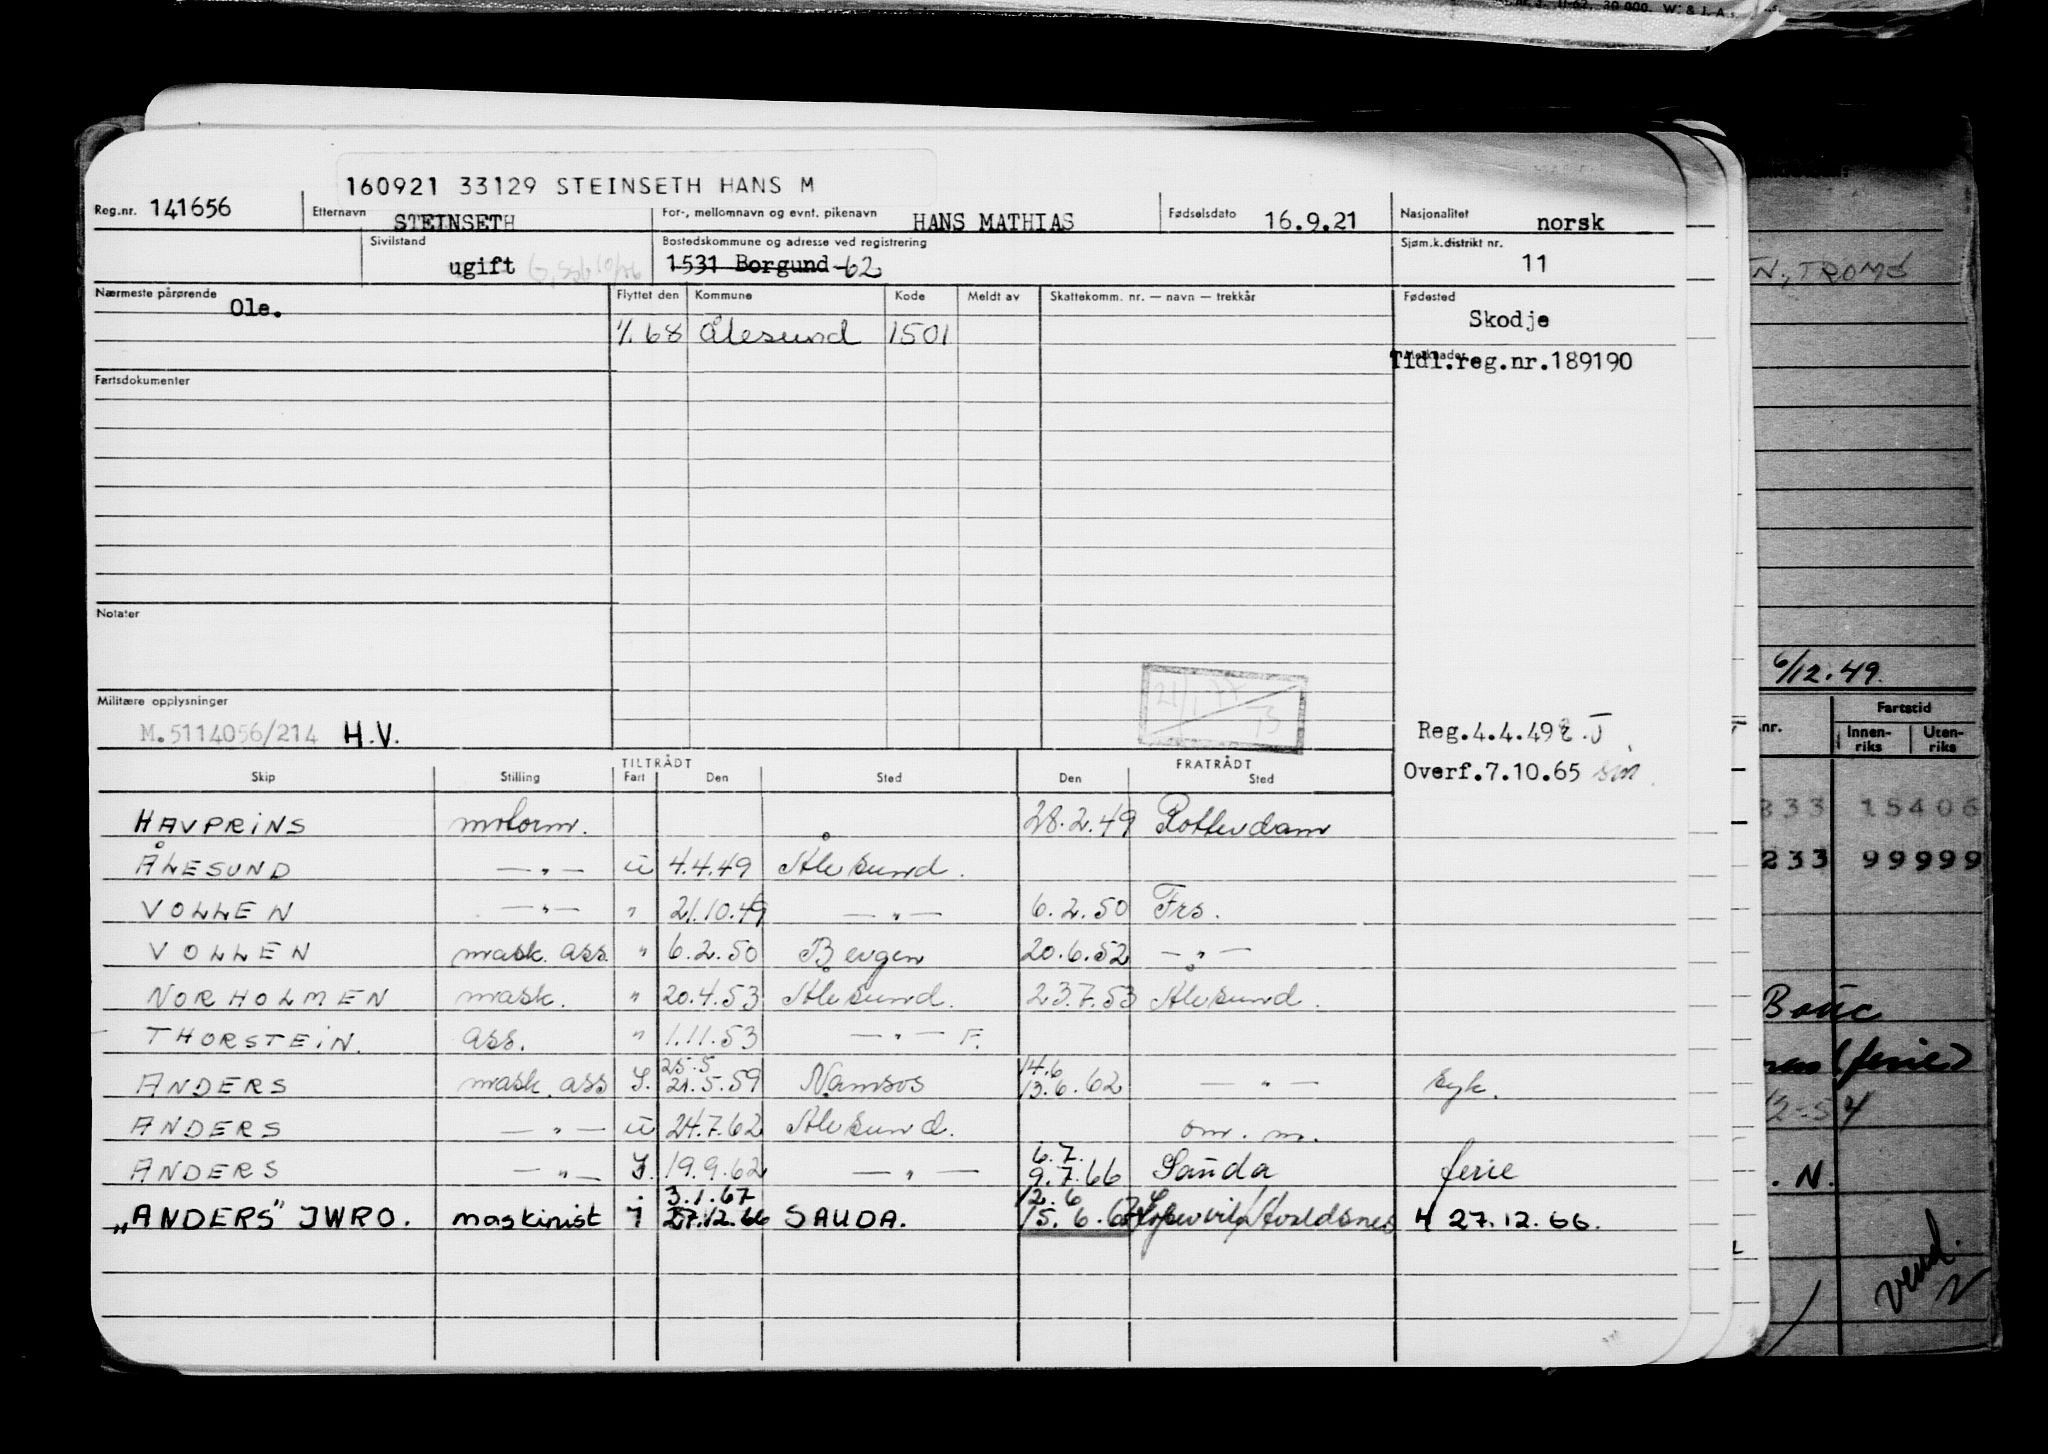 11-62. 30 000. W. & J. A.
160921 33129 STEINSETH HANS M
Reg.nr. 141656 Etternavn STEINSETH For-, mellomnavn og evnt. pikenavn HANS MATHIAS Fødselsdato 16.9.21 Nasjonalitet norsk
Sivilstand ugift Bostedskommune og adresse ved registrering 1531 Borgund -62 Sjøm.k.distrikt nr. 11
Nærmeste pårørende Ole. Flyttet den Kommune Kode Meldt av Skattekomm. nr. — navn — trekkår Fødested Skodje
1/1.68 Ålesund 1501
Merknader Tidl.reg.nr.189190
Fartsdokumenter
Notater
Militære opplysninger
M.5114056/214 H.V.
21/1 77 73
Reg.4.4.49
Overf.7.10.65
TILTRÅDT FRATRÅDT
Skip Stilling Fart Den Sted Den Sted
HAVPRINS motorm. 28.2.49 Rotterdam
ÅLESUND — „ — u 4.4.49 Ålesund.
VOLLEN — „ — „ 21.10.49 — „ — 6.2.50 Frs.
VOLLEN mask. ass. „ 6.2.50 Bergen 20.6.52 — „ —
NORHOLMEN mask. „ 20.4.53 Ålesund. 23.7.53 Ålesund.
THORSTEIN. ass. „ 1.11.53 — „ — F.
ANDERS mask. ass I. 25.5 21.5.59 Namsos 14.6 13.6.62 — „ — syk.
ANDERS — „ — u 24.7.62 Ålesund. om. m.
ANDERS — „ — I. 19.9.62 — „ — 6.7. 9.7.66 Sauda ferie
„ANDERS" JWRO. maskinist i 3.1.67 27.12.66 SAUDA. 12.6 15.6.67 Avaldsnes 4 27.12.66.
N, TROMØ
6/12.49.
Fartstid
nr. Innen-riks Uten-riks
333 15406
233 99999
(ferie)
12-54
. N.
vend.